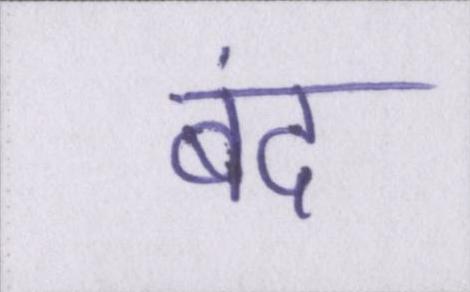 बंद